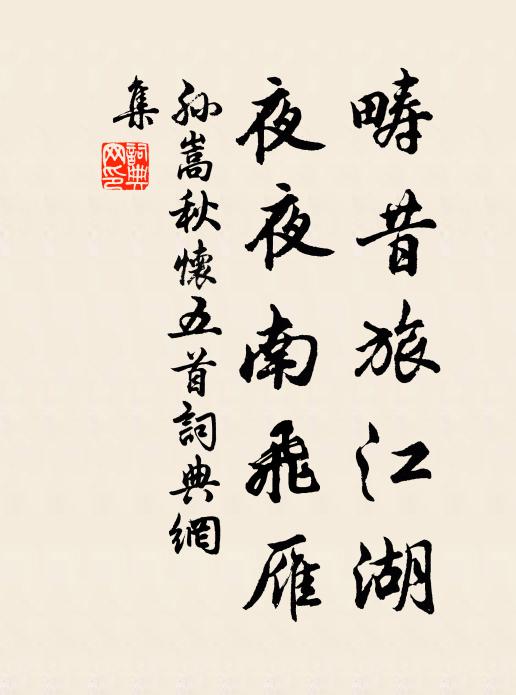 疇昔旅江湖
夜夜南飛雁
孙嵩秋懷五首詞典網
集
詞典
网印